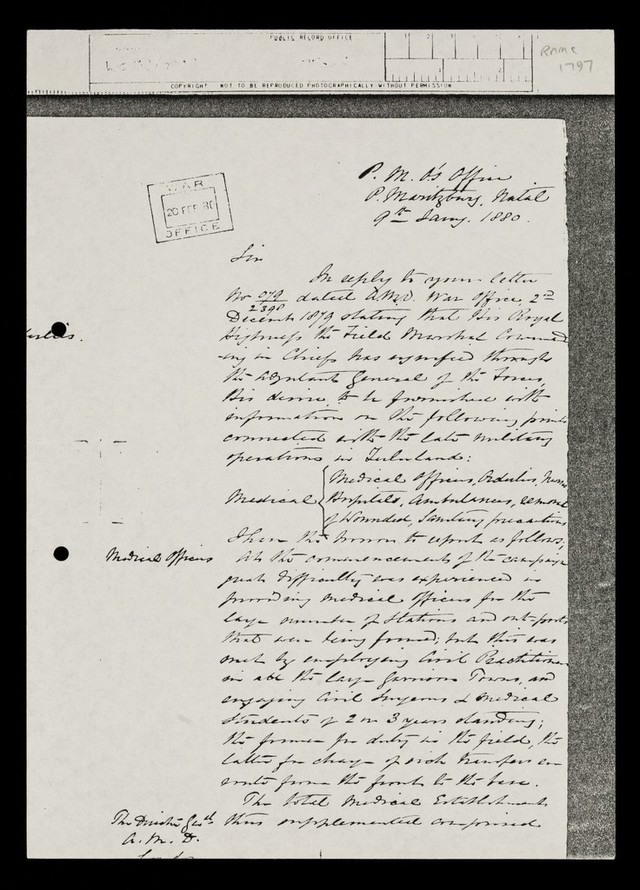 PUBLIC RECORD OFFICE
COPYRIGHT NOT TO BE REPRODUCED PHOTOGRAPHICALLY WITHOUT PERMISSION
RAMC
1797
WAR
20 FEB 80
OFFICE
P. M. O's Office
P. Maritzburg, Natal
9th Jany. 1880.
Sir
In reply to your letter
No 079/2398 dated A.M.D. War Office, 2nd
December 1879 stating that His Royal
Highness the Field Marshal Command
-ing in Chief has signified through
the Adjutant General of the Forces,
His desire to be furnished with
information on the following points
connected with the late military
operations in Zululand:
Medical { Medical Officers, Orderlies, Nurses
Hospitals, Ambulances, removal
of Wounded, Sanitary precautions
I have the honor to report as follows,
Medical Officers
At the commencement of the campaign
great difficulty was experienced in
providing medical officers for the
large number of Stations and out-posts
that were being formed; but this was
met by employing Civil Practitioners
in all the large Garrison Towns, and
engaging Civil Surgeons & Medical
Students of 2 or 3 years standing;
the former for duty in the field, the
latter for charge of sick transfers en
route from the front to the base.
The total Medical Establishment
thus supplemented comprised
The Director Genl
A. M. D.
London